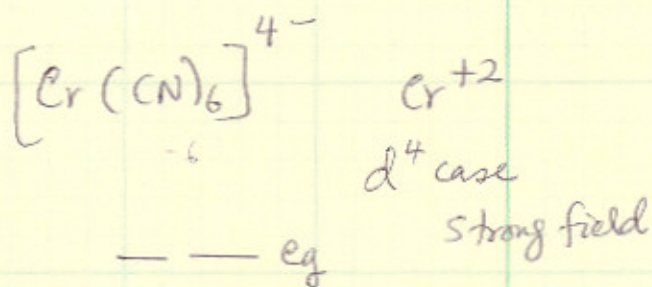 [Cr(CN)6]4-    Cr+2
-6
d4 case
strong field
— — eg